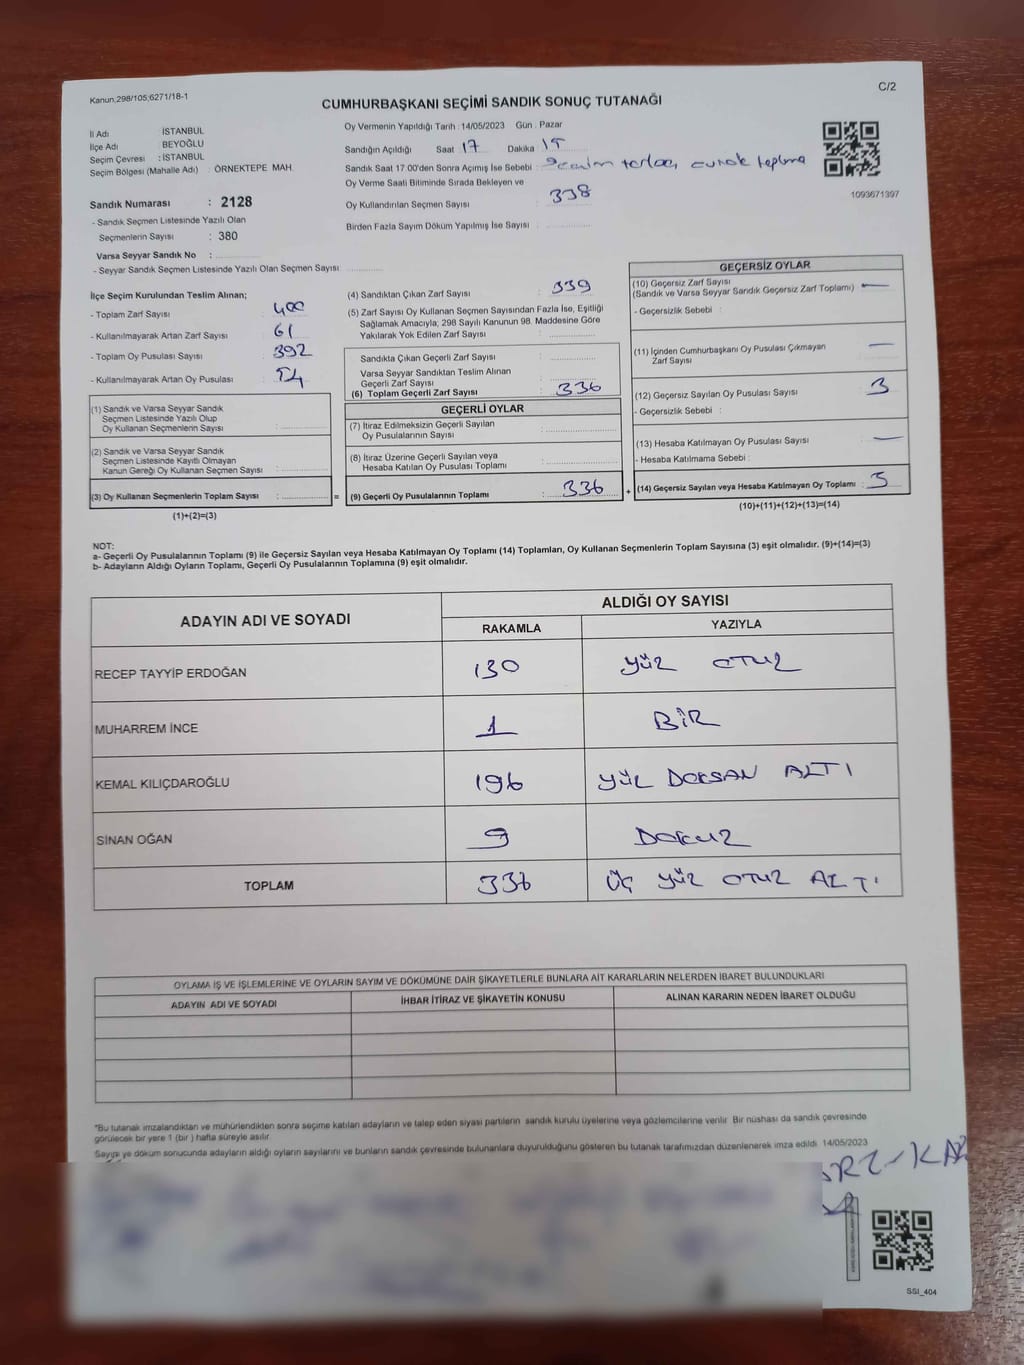 Kanun,298/105;6271/18-1
C/2
CUMHURBAŞKANI SEÇİMİ SANDIK SONUÇ TUTANAĞI
İl Adı İSTANBUL
İlçe Adı BEYOĞLU
Seçim Çevresi : İSTANBUL
Seçim Bölgesi (Mahalle Adı) : ÖRNEKTEPE MAH.
Sandık Numarası : 2128
- Sandık Seçmen Listesinde Yazılı Olan
Seçmenlerin Sayısı : 380
Varsa Seyyar Sandık No :
- Seyyar Sandık Seçmen Listesinde Yazılı Olan Seçmen Sayısı
Oy Vermenin Yapıldığı Tarih : 14/05/2023 Gün : Pazar
Sandığın Açıldığı Saat 17 Dakika 15
Sandık Saat 17.00'den Sonra Açımış İse Sebebi : evrak toplama
Oy Verme Saati Bitiminde Sırada Bekleyen ve
Oy Kullandırılan Seçmen Sayısı 338
Birden Fazla Sayım Döküm Yapılmış İse Sayısı :
1093671397
İlçe Seçim Kurulundan Teslim Alınan;
- Toplam Zarf Sayısı : 400
- Kullanılmayarak Artan Zarf Sayısı : 61
- Toplam Oy Pusulası Sayısı : 392
- Kullanılmayarak Artan Oy Pusulası : 54
(1) Sandık ve Varsa Seyyar Sandık
Seçmen Listesinde Yazılı Olup
Oy Kullanan Seçmenlerin Sayısı :
(2) Sandık ve Varsa Seyyar Sandık
Seçmen Listesinde Kayıtlı Olmayan
Kanun Gereği Oy Kullanan Seçmen Sayısı :
(3) Oy Kullanan Seçmenlerin Toplam Sayısı :
(1)+(2)=(3)
(4) Sandıktan Çıkan Zarf Sayısı : 339
(5) Zarf Sayısı Oy Kullanan Seçmen Sayısından Fazla İse, Eşitliği
Sağlamak Amacıyla; 298 Sayılı Kanunun 98. Maddesine Göre
Yakılarak Yok Edilen Zarf Sayısı :
Sandıkta Çıkan Geçerli Zarf Sayısı :
Varsa Seyyar Sandıktan Teslim Alınan
Geçerli Zarf Sayısı :
(6) Toplam Geçerli Zarf Sayısı : 336
GEÇERLİ OYLAR
(7) İtiraz Edilmeksizin Geçerli Sayılan
Oy Pusulalarının Sayısı :
(8) İtiraz Üzerine Geçerli Sayılan veya
Hesaba Katılan Oy Pusulası Toplamı :
= (9) Geçerli Oy Pusulalarının Toplamı : 336
GEÇERSİZ OYLAR
(10) Geçersiz Zarf Sayısı
(Sandık ve Varsa Seyyar Sandık Geçersiz Zarf Toplamı) : —
- Geçersizlik Sebebi :
(11) İçinden Cumhurbaşkanı Oy Pusulası Çıkmayan
Zarf Sayısı : —
(12) Geçersiz Sayılan Oy Pusulası Sayısı : 3
- Geçersizlik Sebebi :
(13) Hesaba Katılmayan Oy Pusulası Sayısı : —
- Hesaba Katılmama Sebebi :
+ (14) Geçersiz Sayılan veya Hesaba Katılmayan Oy Toplamı : 3
(10)+(11)+(12)+(13)=(14)
NOT:
a- Geçerli Oy Pusulalarının Toplamı (9) ile Geçersiz Sayılan veya Hesaba Katılmayan Oy Toplamı (14) Toplamları, Oy Kullanan Seçmenlerin Toplam Sayısına (3) eşit olmalıdır. (9)+(14)=(3)
b- Adayların Aldığı Oyların Toplamı, Geçerli Oy Pusulalarının Toplamına (9) eşit olmalıdır.
ADAYIN ADI VE SOYADI
ALDIĞI OY SAYISI
RAKAMLA YAZIYLA
RECEP TAYYİP ERDOĞAN 130 YÜZ OTUZ
MUHARREM İNCE 1 BİR
KEMAL KILIÇDAROĞLU 196 YÜZ DOKSAN ALTI
SİNAN OĞAN 9 DOKUZ
TOPLAM 336 ÜÇ YÜZ OTUZ ALTI
OYLAMA İŞ VE İŞLEMLERİNE VE OYLARIN SAYIM VE DÖKÜMÜNE DAİR ŞİKAYETLERLE BUNLARA AİT KARARLARIN NELERDEN İBARET BULUNDUKLARI
ADAYIN ADI VE SOYADI İHBAR İTİRAZ VE ŞİKAYETİN KONUSU ALINAN KARARIN NEDEN İBARET OLDUĞU
*Bu tutanak imzalandıktan ve mühürlendikten sonra seçime katılan adayların ve talep eden siyasi partilerin sandık kurulu üyelerine veya gözlemcilerine verilir. Bir nüshası da sandık çevresinde
görülecek bir yere 1 (bir ) hafta süreyle asılır.
Sayım ve döküm sonucunda adayların aldığı oyların sayılarını ve bunların sandık çevresinde bulunanlara duyurulduğunu gösteren bu tutanak tarafımızdan düzenlenerek imza edildi. 14/05/2023
SSI_404